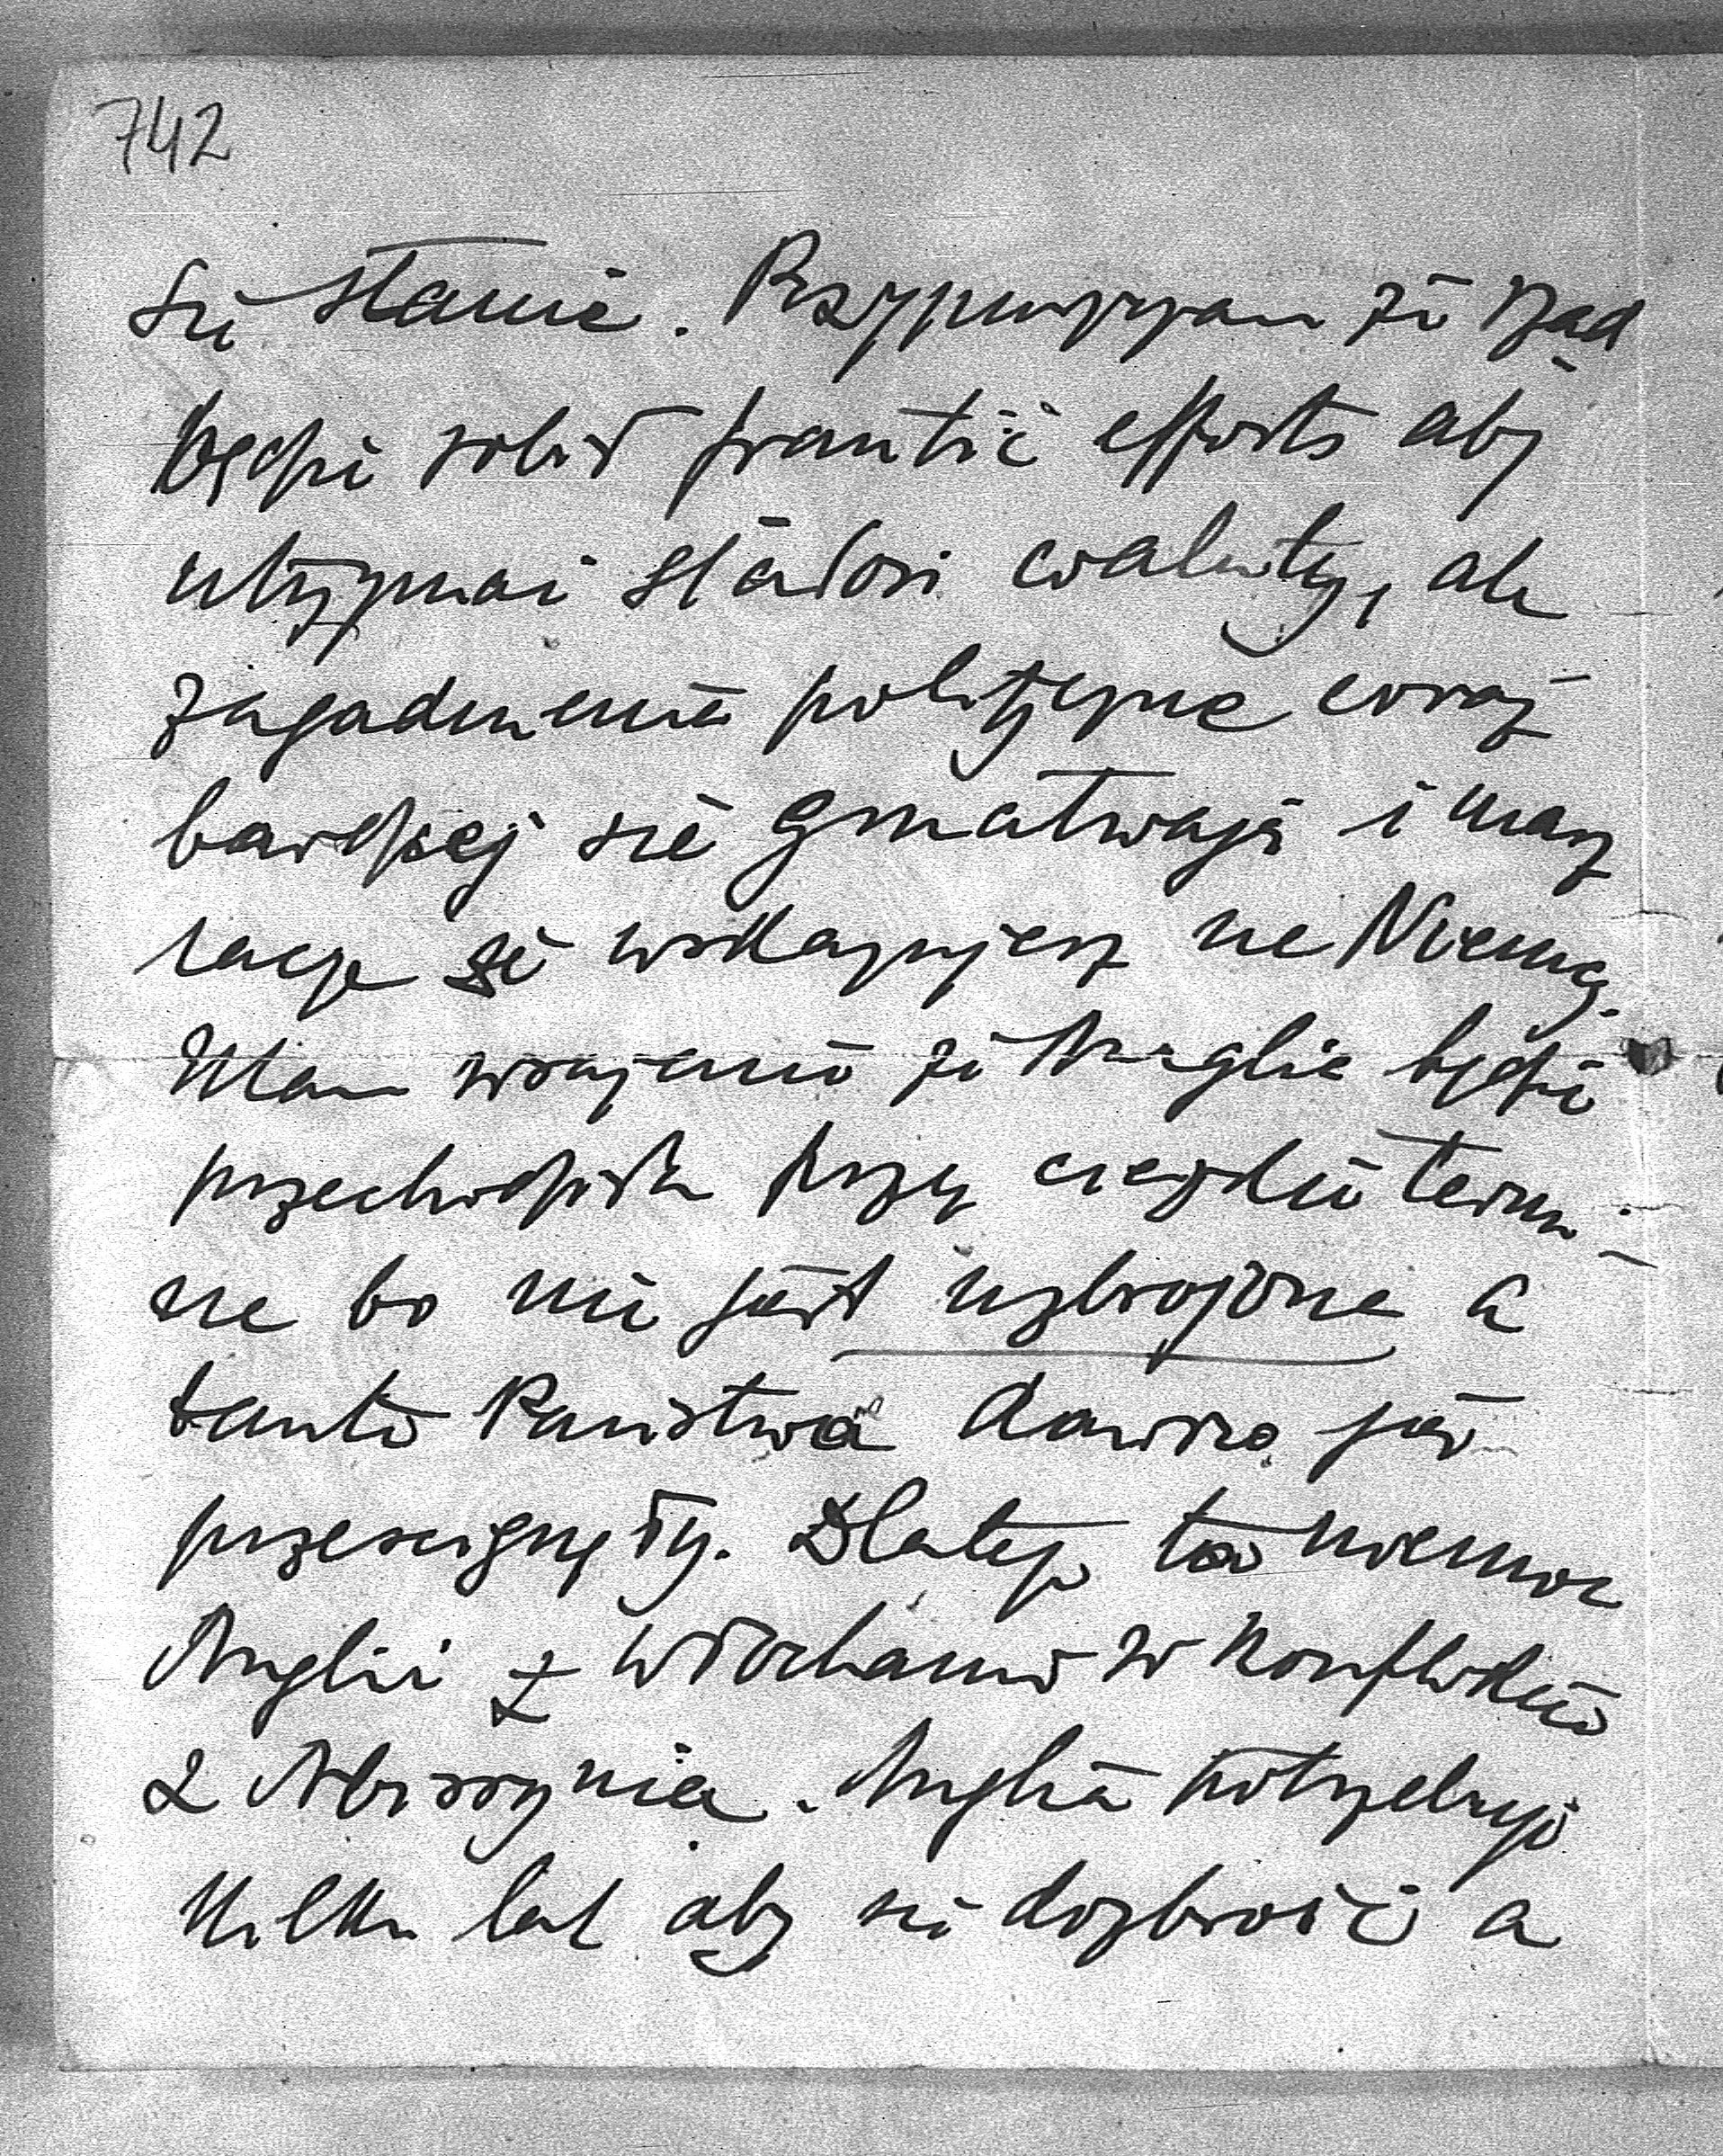 742
się stanie. Przypuszczam że rząd
będzie robił frantic efforts aby
utrzymać stałość waluty, ale
zagadnienia polityczne coraz
bardziej się gmatwają i masz
rację że wskazujesz na Niemcy.
Mam wrażenie że Anglia będzie
przechodziła przez ciężkie termi-
na bo nie jest uzbrojona a
tamte Państwa dawno ją
prześcignęły. Dlatego ta niemoc
Anglii z Włochami w konflikcie
z Abissynią. Anglia potrzebuje
kilku lat aby się dozbroić a